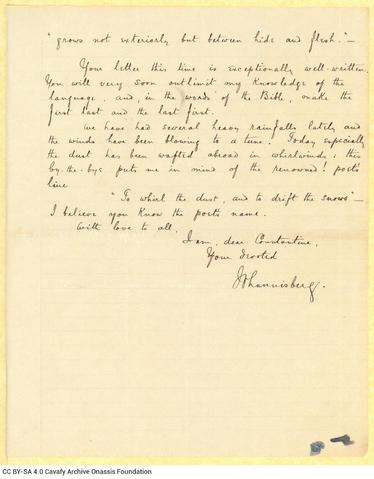 "grows not exteriorly but between hide and flesh."—
Your letter this time is exceptionally well-written.
You will very soon outlimit my knowledge of the
language, and, in the words of the Bible, make the
first last and the last first.
We have had several heavy rainfalls lately and
the winds have been blowing to a tune. Today especially
the dust has been wafted abroad in whirlwinds; this
by-the-bye puts me in mind of the renowned! poet's
line
"To whirl the dust, and to drift the snows"—
I believe you know the poet's name.
With love to all,
I am, dear Constantine,
Your devoted
CC BY-SA 4.0 Cavafy Archive Onassis Foundation